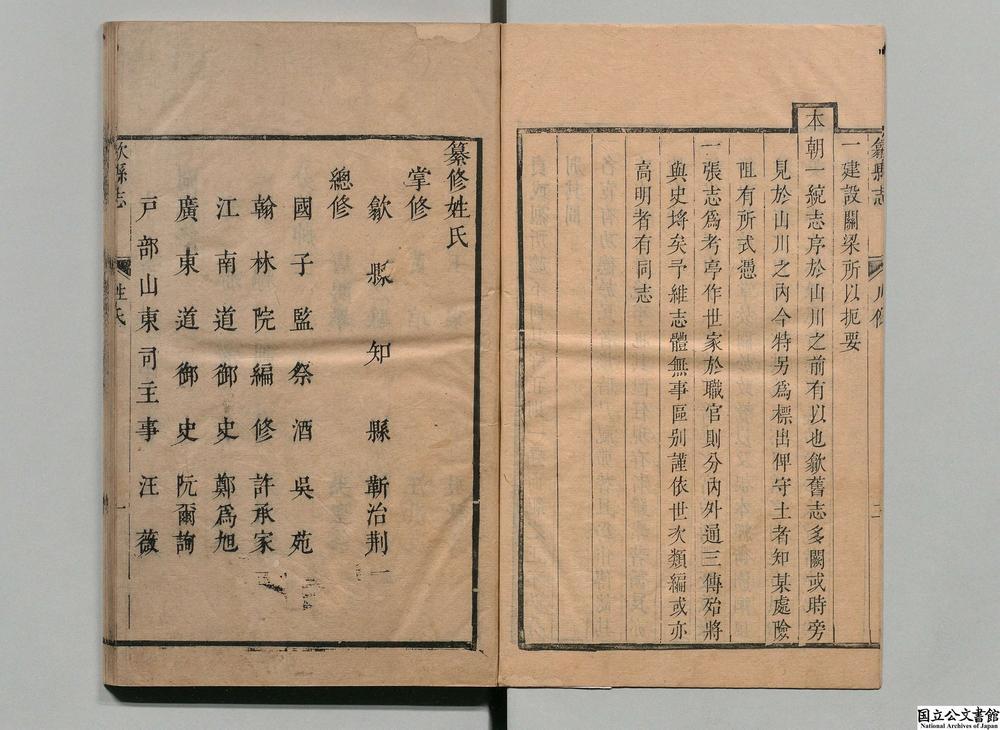 歙縣志
凡例
三
一建設關梁所以扼要
本朝一統志序於山川之前有以也歙舊志多闕或時旁
見於山川之內今特另爲標出俾守土者知某處險
阻有所式憑
一張志爲考亭作世家於職官則分內外通三傳殆將
與史埒矣予維志體無事區別謹依世次類編或亦
高明者有同志
纂修姓氏
掌修
歙縣知縣靳治荆
總修
國子監祭酒吳苑
翰林院編修許承家
江南道御史鄭爲旭
廣東道御史阮爾詢
戶部山東司主事汪薇
歙縣志
姓氏
一
国立公文書館
National Archives of Japan